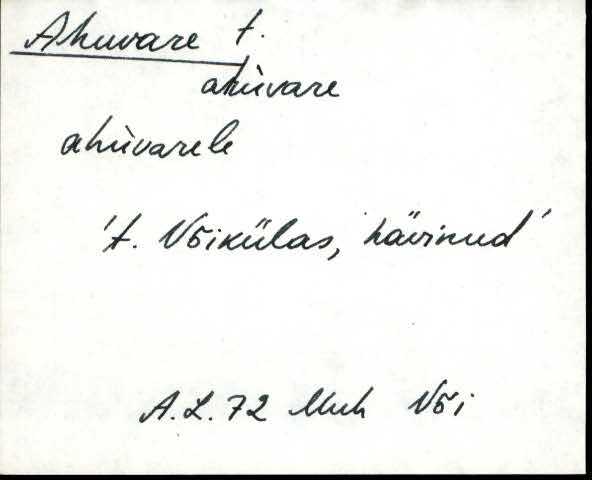 Ahuvare t.
ahùvare
ahùvarele
't. Võikülas, hävinud'
A.L. 72 Muh Või